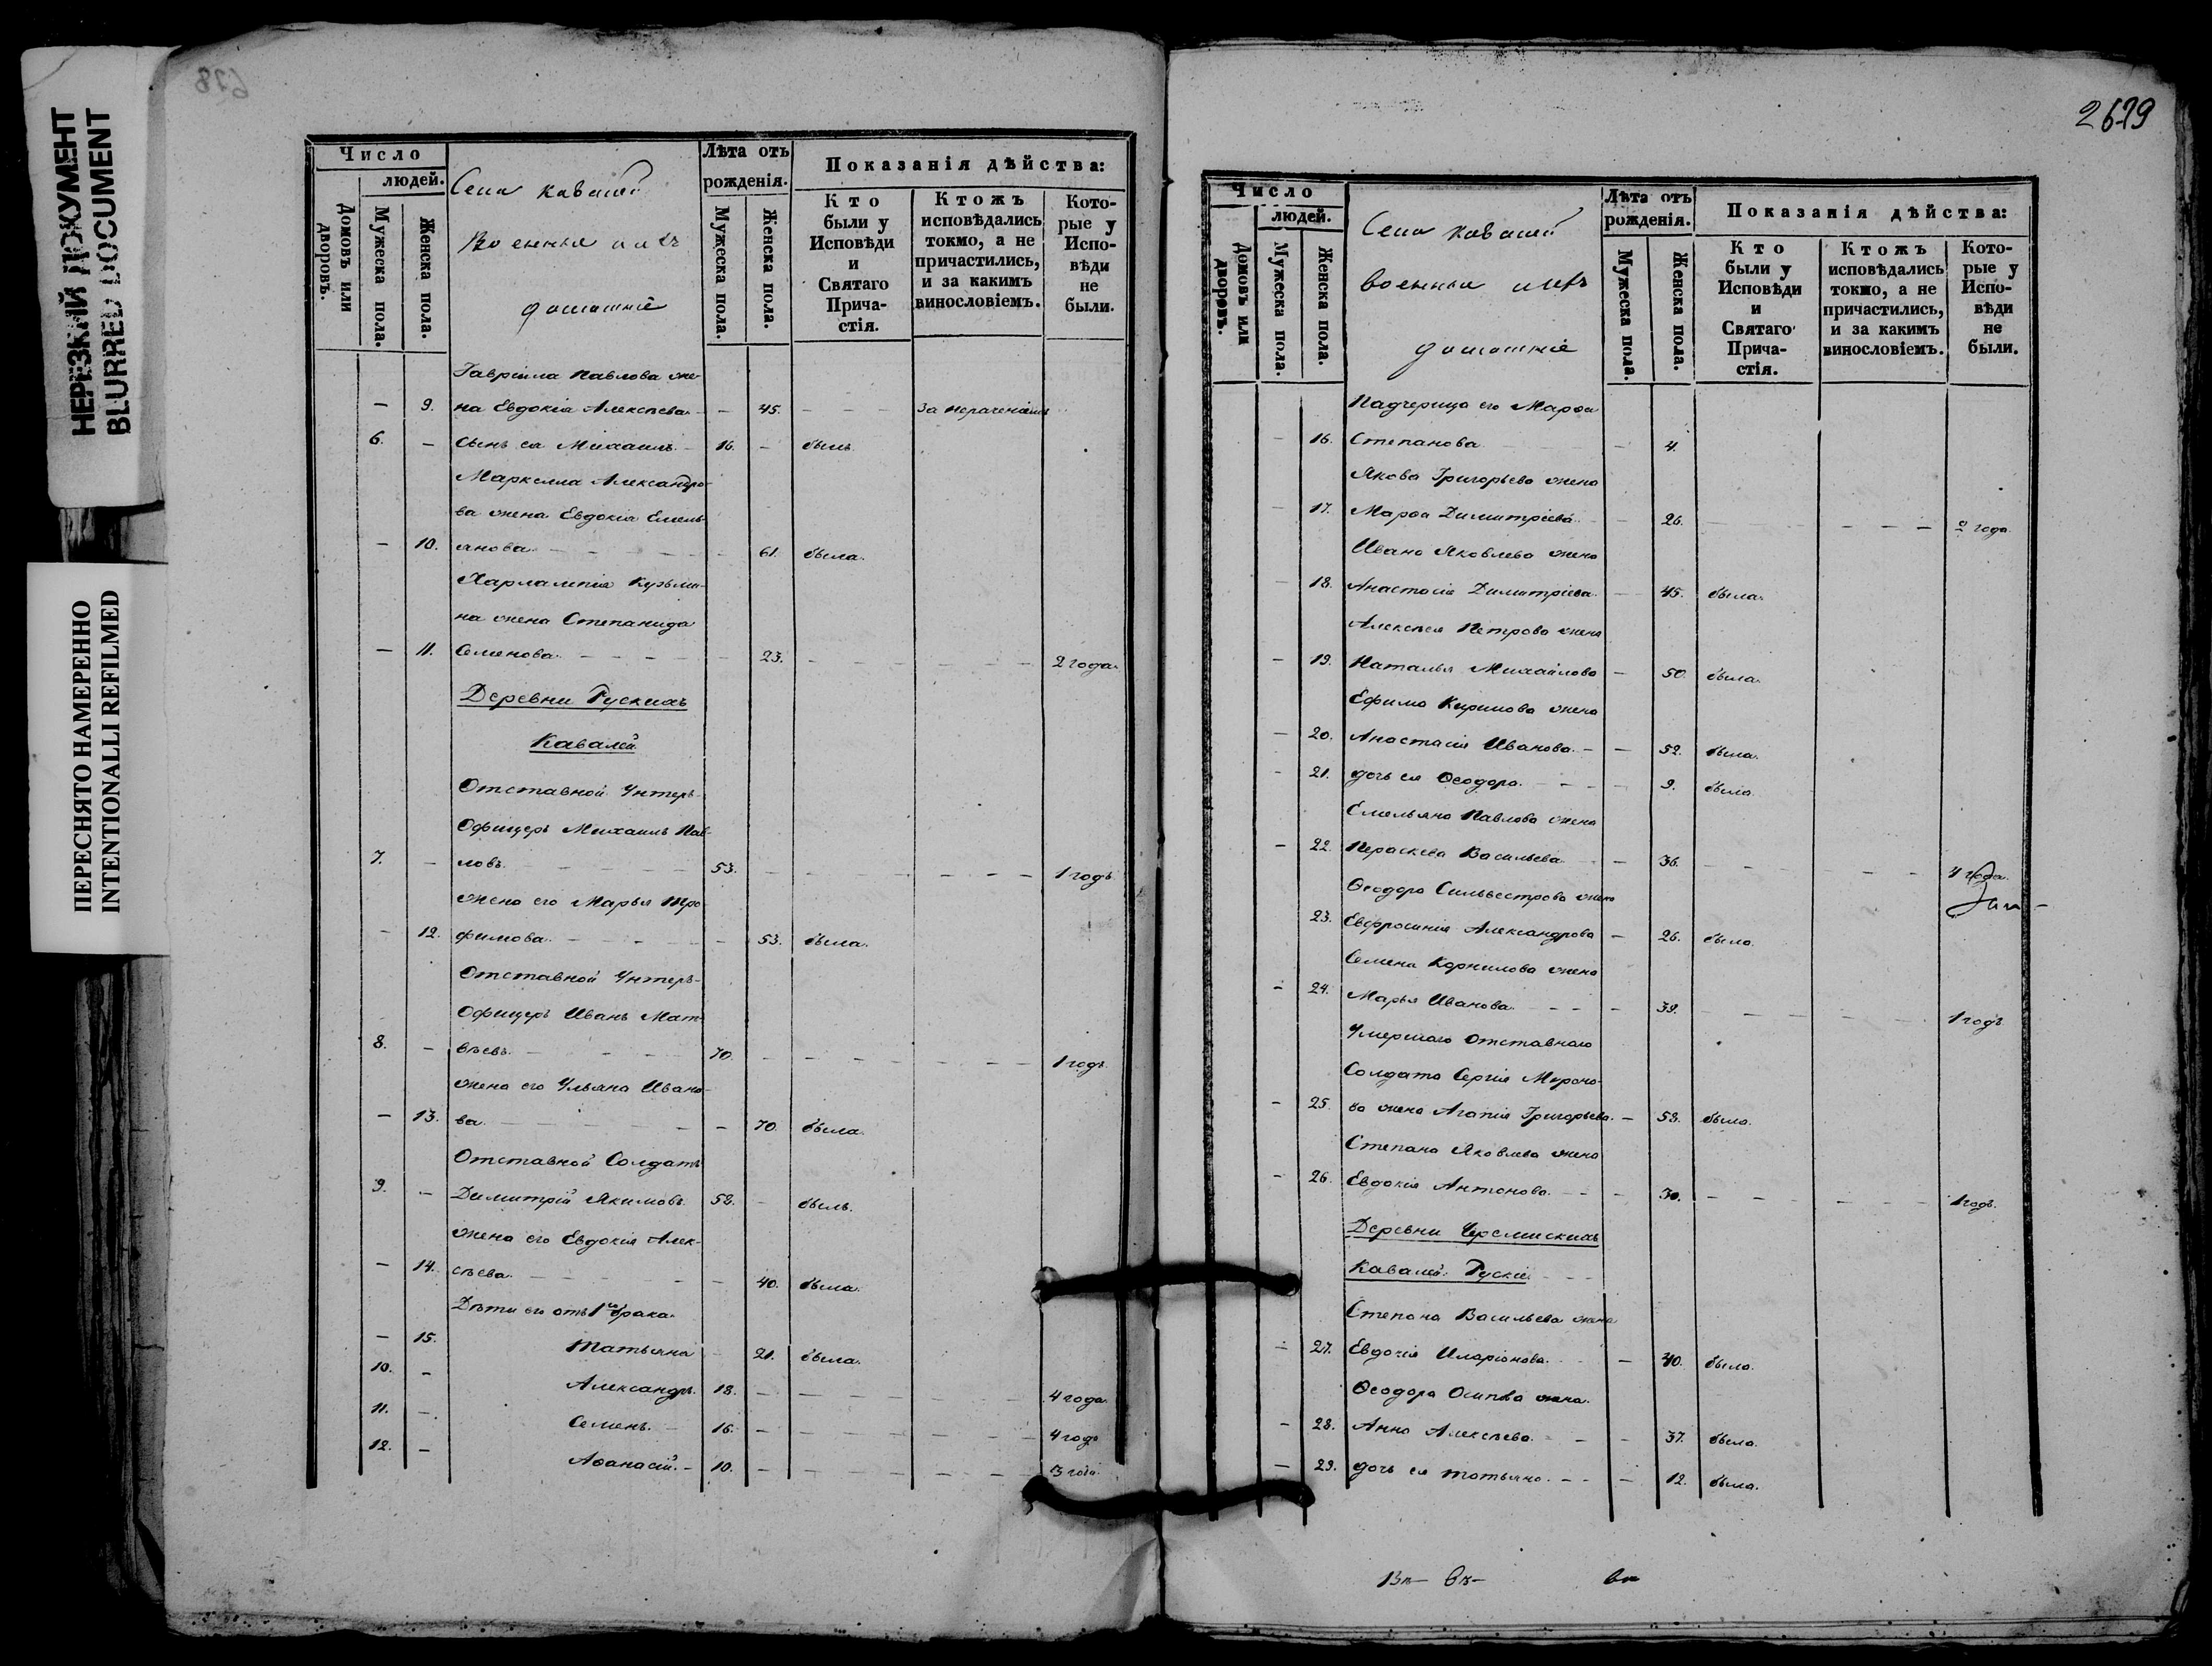 НЕРЕЗКИЙ ДОКУМЕНТ
BLURRED DOCUMENT
ПЕРЕСНЯТО НАМЕРЕННО
INTENTIONALLI REFILMED
678
Число
людей.
Домовъ или дворовъ.
Мужеска пола.
Женска пола.
Села Кавалей
Военные и ихъ
домашніе
Лѣта отъ рожденія.
Мужеска пола.
Женска пола.
Показанія дѣйства:
Кто были у Исповѣди и Святаго Прича-стія.
Ктожъ исповѣдались токмо, а не причастились, и за какимъ винословіемъ.
Кото-рые у Испо-вѣди не были.
Гавріила Павлова же-
— 9. на Евдокія Алексѣева — 45. — — — За нераченіемъ
6. — Сынъ ея Михаилъ — 16. — былъ.
Маркелла Александро-
ва жена Евдокія Емель-
— 10. янова — 61. была.
Харлампія Кузьми-
на жена Степанида
— 11. Семенова — 23. — — — 2 года.
Деревни Рускихъ
Кавалей
Отставной Унтеръ-
Офицеръ Михаилъ Пав-
7. — ловъ 53. — — — 1 годъ.
жена его Марья Тро-
— 12. фимова — 53. была.
Отставной Унтеръ-
Офицеръ Иванъ Мат-
8. — вѣевъ 70. — — — 1 годъ.
жена его Ульяна Ивано-
— 13. ва — 70. была.
Отставной Солдатъ
9. — Димитрій Якимовъ 58. — былъ.
жена его Евдокія Алек-
— 14. сѣева — 40. была.
Дѣти его отъ 1го брака
— 15. Татьяна — 21. была.
10. — Александръ. 18. — — — 4 года.
11. — Семенъ. 16. — — — 4 года
12. — Аѳанасій. 10. — — — 3 года
2679
Число
людей.
Домовъ или дворовъ.
Мужеска пола.
Женска пола.
Села Кавалей
военные и ихъ
домашніе
Лѣта отъ рожденія.
Мужеска пола.
Женска пола.
Показанія дѣйства:
Кто были у Исповѣди и Святаго Прича-стія.
Ктожъ исповѣдались токмо, а не причастились, и за какимъ винословіемъ.
Кото-рые у Испо-вѣди не были.
Падчерица его Марѳа
— 16. Степанова — 4.
Якова Григорьева жена
— 17. Марѳа Димитріева — 26. — — — 2 года
Ивана Яковлева жена
— 18. Анастасія Димитріева — 45. была.
Алексѣя Петрова жена
— 19. Наталья Михайлова — 50. была.
Ефима Кирилова жена
— 20. Анастасія Иванова — 52. была.
— 21. дочь ея Ѳеодора — 9. была.
Емельяна Павлова жена
— 22. Параскева Васильева — 36. — — — 4 года.
Ѳеодора Сильвестрова жена
— 23. Евфросинія Александрова — 26. была.
Семена Корнилова жена
— 24. Марья Иванова — 39. — — — 1 годъ
Умершаго отставнаго
Солдата Сергія Мироно-
— 25. ва жена Агапія Григорьева. — 58. была.
Степана Яковлева жена
— 26. Евдокія Антонова — 30. — — — 1 годъ.
Деревни Черемискихъ
Кавалей Рускіе
Степана Васильева жена
— 27. Евдокія Иларіонова — 40. была.
Ѳеодора Осипова жена.
— 28. Анна Алексѣева — 37. была.
— 29. дочь ея Татьяна — 12. была.